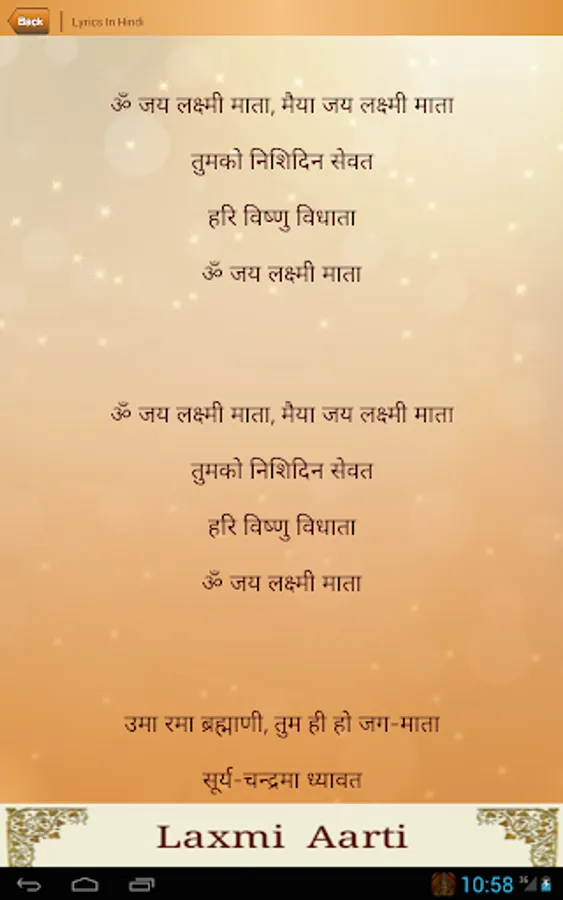 Back | Lyrics In Hindi
ॐ जय लक्ष्मी माता, मैया जय लक्ष्मी माता
तुमको निशिदिन सेवत
हरि विष्णु विधाता
ॐ जय लक्ष्मी माता
ॐ जय लक्ष्मी माता, मैया जय लक्ष्मी माता
तुमको निशिदिन सेवत
हरि विष्णु विधाता
ॐ जय लक्ष्मी माता
उमा रमा ब्रह्माणी, तुम ही हो जग-माता
सूर्य-चन्द्रमा ध्यावत
Laxmi Aarti
10:58 36